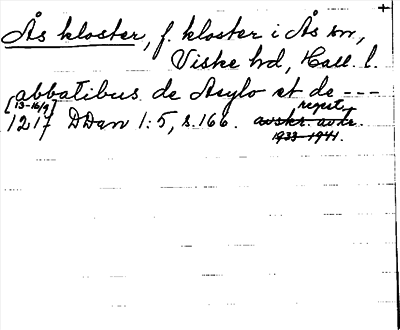 +
Ås kloster, f. kloster i Ås sn,
Viske hd, Hall. l.
abbatibus de Asylo et de ---
[13-16/9] regest
1217 DDan 1:5, s. 166. avskr. avtr.
1933-1941.